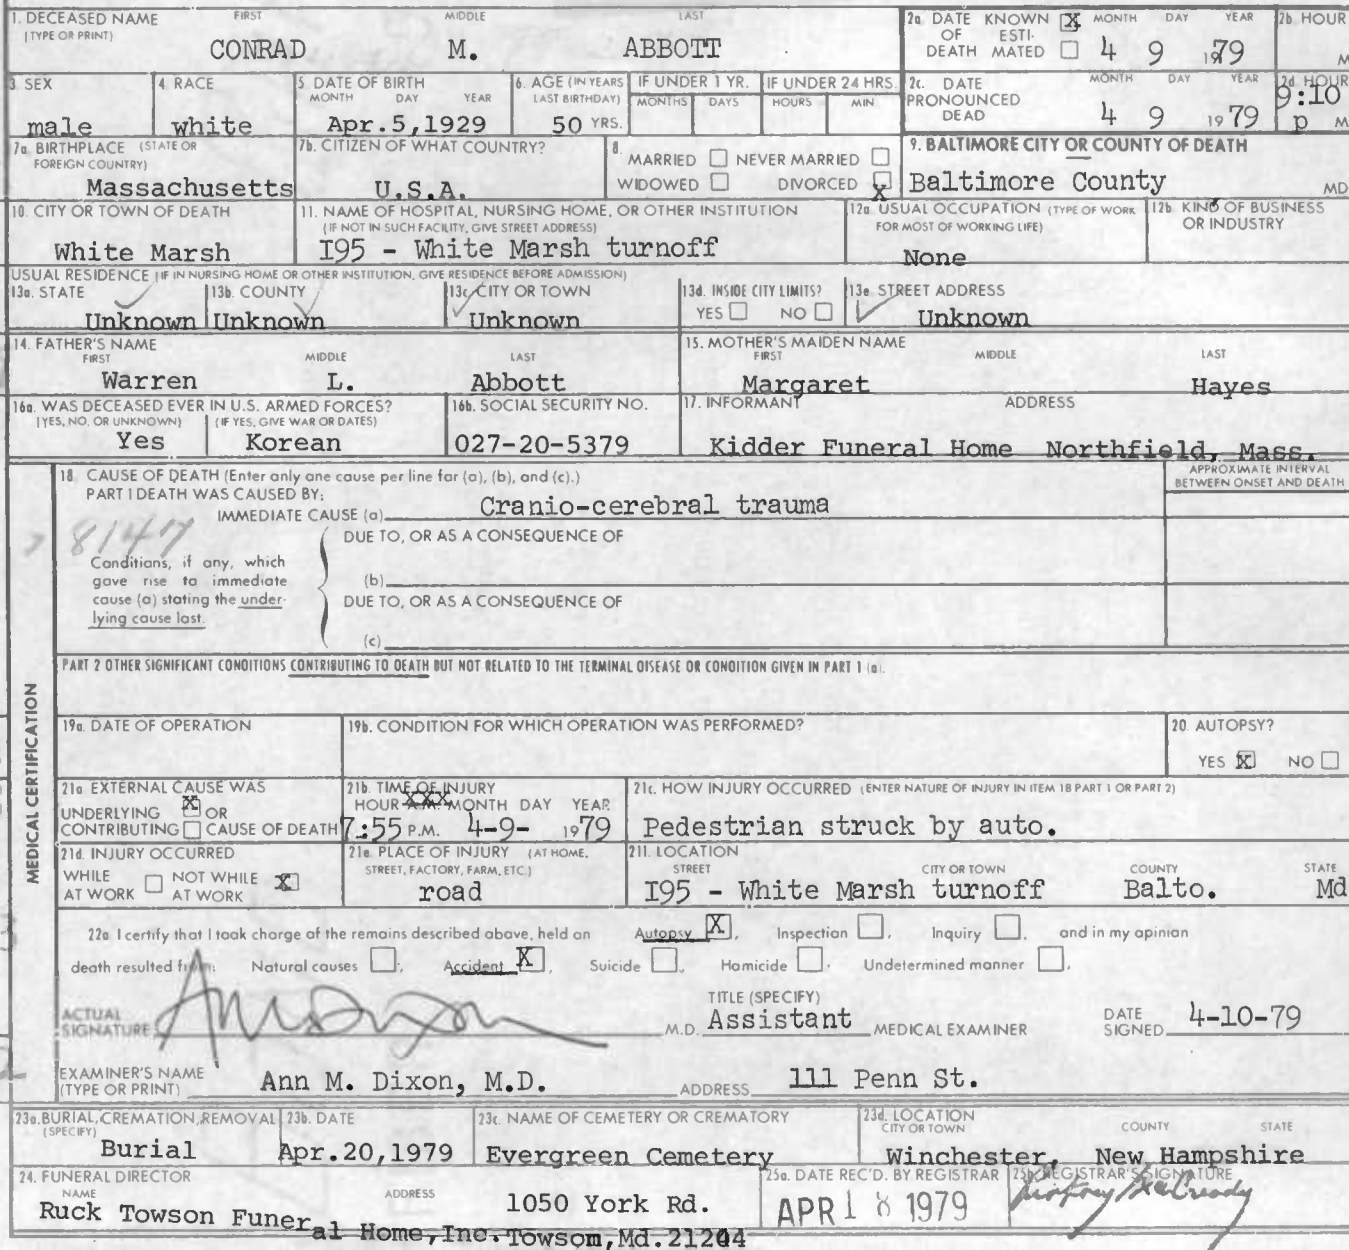 1. DECEASED NAME FIRST MIDDLE LAST
(TYPE OR PRINT)
CONRAD M. ABBOTT
2a. DATE KNOWN X MONTH DAY YEAR 2b. HOUR
OF ESTI-
DEATH MATED 4 9 1979 M
3. SEX male
4. RACE white
5. DATE OF BIRTH
MONTH DAY YEAR
Apr.5,1929
6. AGE (IN YEARS
LAST BIRTHDAY)
50 YRS.
IF UNDER 1 YR. IF UNDER 24 HRS.
MONTHS DAYS HOURS MIN.
2c. DATE MONTH DAY YEAR 2d. HOUR
PRONOUNCED
DEAD 4 9 1979 9:10 p M
7a. BIRTHPLACE (STATE OR
FOREIGN COUNTRY)
Massachusetts
7b. CITIZEN OF WHAT COUNTRY?
U.S.A.
8. MARRIED NEVER MARRIED
WIDOWED DIVORCED X
9. BALTIMORE CITY OR COUNTY OF DEATH
Baltimore County MD
10. CITY OR TOWN OF DEATH
White Marsh
11. NAME OF HOSPITAL, NURSING HOME, OR OTHER INSTITUTION
(IF NOT IN SUCH FACILITY, GIVE STREET ADDRESS)
I95 - White Marsh turnoff
12a. USUAL OCCUPATION (TYPE OF WORK
FOR MOST OF WORKING LIFE)
None
12b. KIND OF BUSINESS
OR INDUSTRY
USUAL RESIDENCE (IF IN NURSING HOME OR OTHER INSTITUTION, GIVE RESIDENCE BEFORE ADMISSION)
13a. STATE 13b. COUNTY 13c. CITY OR TOWN 13d. INSIDE CITY LIMITS? 13e. STREET ADDRESS
YES NO
Unknown Unknown Unknown Unknown
14. FATHER'S NAME
FIRST MIDDLE LAST
Warren L. Abbott
15. MOTHER'S MAIDEN NAME
FIRST MIDDLE LAST
Margaret Hayes
16a. WAS DECEASED EVER IN U.S. ARMED FORCES?
(YES, NO, OR UNKNOWN) (IF YES, GIVE WAR OR DATES)
Yes Korean
16b. SOCIAL SECURITY NO.
027-20-5379
17. INFORMANT ADDRESS
Kidder Funeral Home Northfield, Mass.
MEDICAL CERTIFICATION
18. CAUSE OF DEATH (Enter only one cause per line for (a), (b), and (c).)
PART 1 DEATH WAS CAUSED BY:
IMMEDIATE CAUSE (a) Cranio-cerebral trauma
APPROXIMATE INTERVAL
BETWEEN ONSET AND DEATH
8147
DUE TO, OR AS A CONSEQUENCE OF
Conditions, if any, which
gave rise to immediate
cause (a) stating the under-
lying cause last.
(b)
DUE TO, OR AS A CONSEQUENCE OF
(c)
PART 2 OTHER SIGNIFICANT CONDITIONS CONTRIBUTING TO DEATH BUT NOT RELATED TO THE TERMINAL DISEASE OR CONDITION GIVEN IN PART 1 (a).
19a. DATE OF OPERATION
19b. CONDITION FOR WHICH OPERATION WAS PERFORMED?
20. AUTOPSY?
YES X NO
21a. EXTERNAL CAUSE WAS
UNDERLYING X OR
CONTRIBUTING CAUSE OF DEATH
21b. TIME OF INJURY
HOUR A.M. MONTH DAY YEAR
7:55 P.M. 4-9- 1979
21c. HOW INJURY OCCURRED (ENTER NATURE OF INJURY IN ITEM 18 PART 1 OR PART 2)
Pedestrian struck by auto.
21d. INJURY OCCURRED
WHILE NOT WHILE X
AT WORK AT WORK
21e. PLACE OF INJURY (AT HOME,
STREET, FACTORY, FARM, ETC.)
road
21f. LOCATION
STREET CITY OR TOWN COUNTY STATE
I95 - White Marsh turnoff Balto. Md
22a. I certify that I took charge of the remains described above, held an Autopsy X, Inspection, Inquiry, and in my opinion
death resulted from: Natural causes, Accident X, Suicide, Homicide, Undetermined manner.
ACTUAL
SIGNATURE Ann M Dixon M.D.
TITLE (SPECIFY)
Assistant MEDICAL EXAMINER
DATE
SIGNED 4-10-79
EXAMINER'S NAME
(TYPE OR PRINT) Ann M. Dixon, M.D. ADDRESS 111 Penn St.
23a. BURIAL, CREMATION, REMOVAL
(SPECIFY)
Burial
23b. DATE
Apr.20,1979
23c. NAME OF CEMETERY OR CREMATORY
Evergreen Cemetery
23d. LOCATION
CITY OR TOWN COUNTY STATE
Winchester, New Hampshire
24. FUNERAL DIRECTOR
NAME ADDRESS
Ruck Towson Funeral Home,Inc. 1050 York Rd.
Towsom,Md.21204
25a. DATE REC'D. BY REGISTRAR
APR 18 1979
25b. REGISTRAR'S SIGNATURE